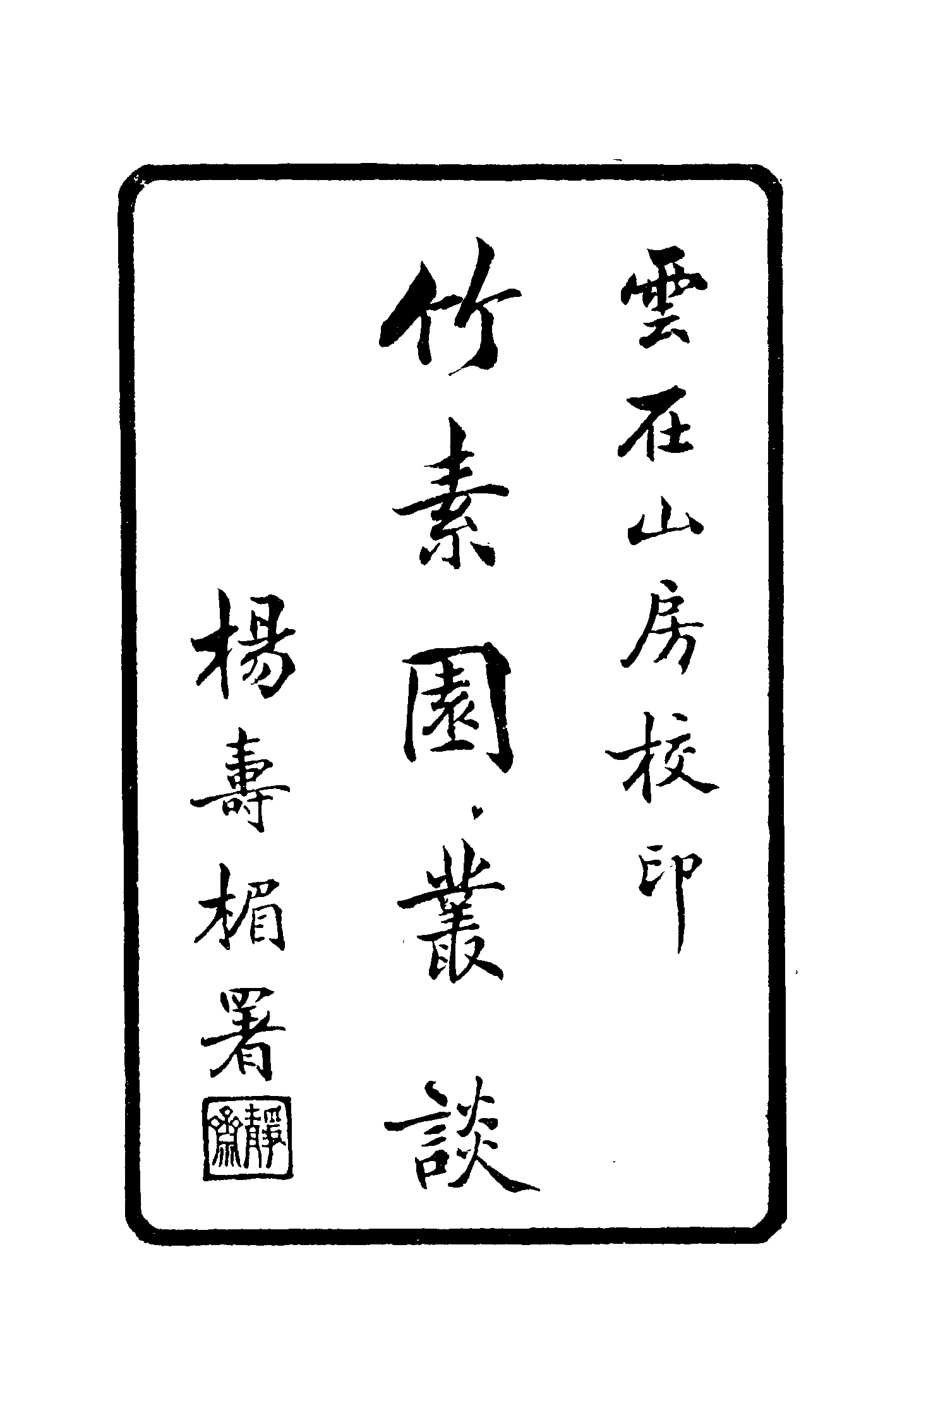 雲在山房校印
竹素園叢談
楊壽楣署
靜齋